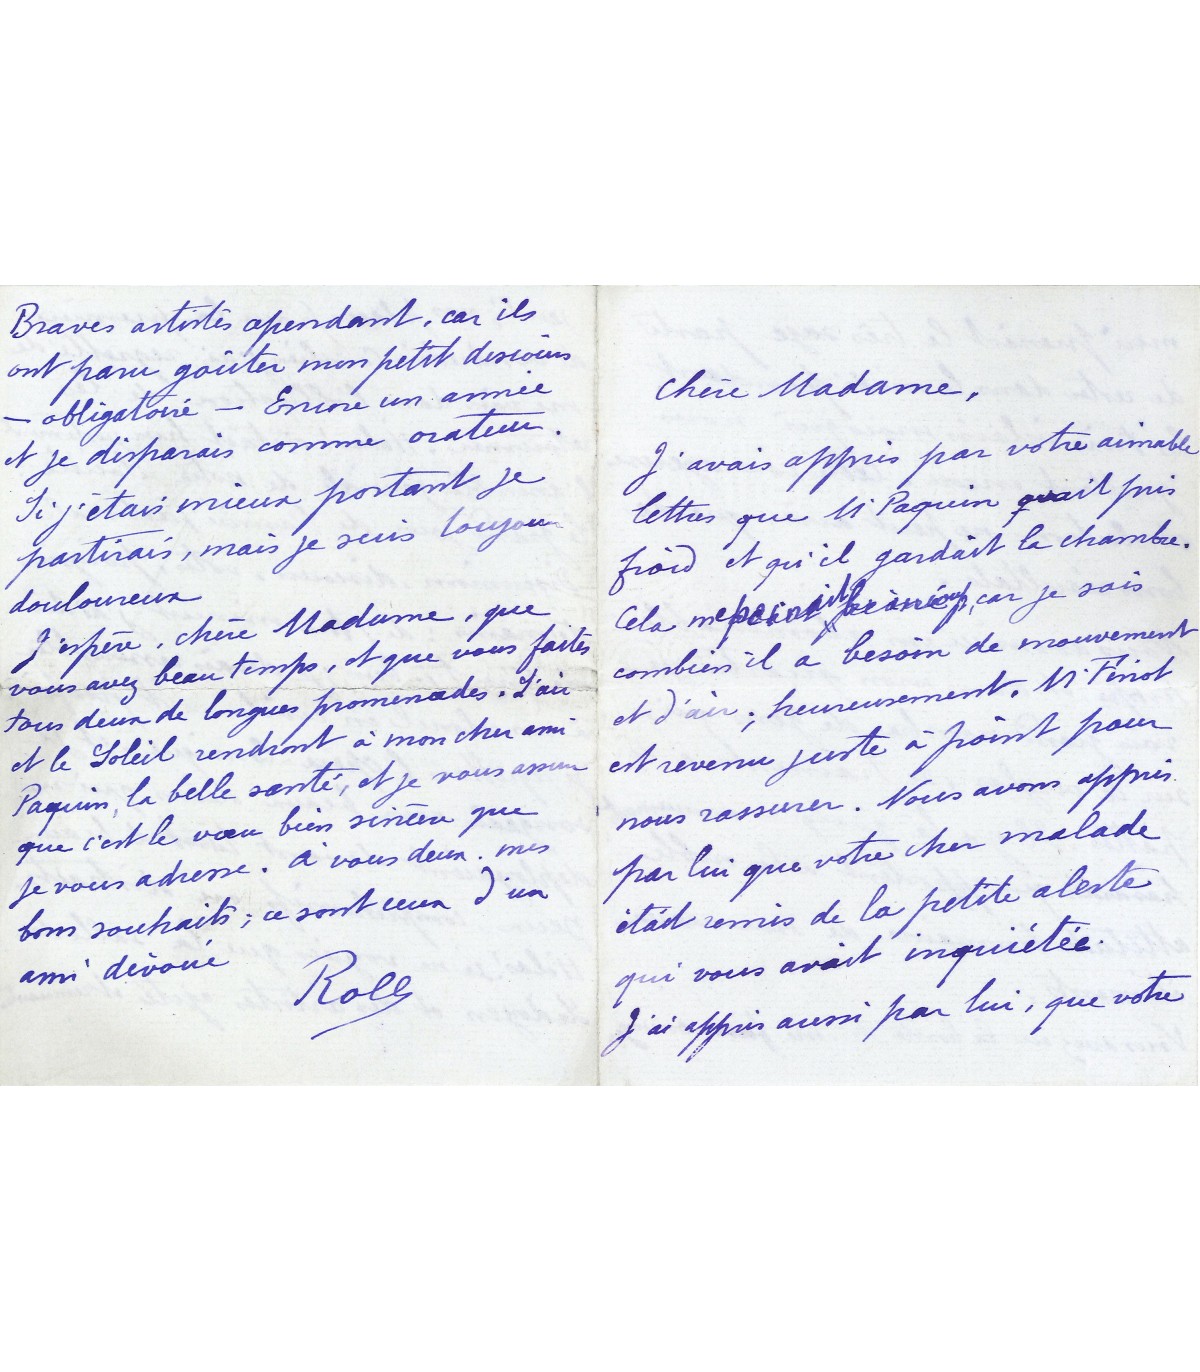 Chère Madame,
J'avais appris par votre aimable
lettres que Mr Paquin avait pris
froid et qu'il gardait la chambre.
Cela me peinait beaucoup, car je sais
combien il a besoin de mouvement
et d'air ; heureusement. Mr Finot
est revenu juste à point pour
nous rassurer. Nous avons appris
par lui que votre cher malade
était remis de la petite alerte
qui vous avait inquiétée.
J'ai appris aussi par lui, que votre
Braves artistes cependant, car ils
ont paru goûter mon petit discours
— obligatoire — Encore un année
et je disparais comme orateur.
Si j'étais mieux portant je
partirais, mais je suis toujours
douloureux
J'espère, chère Madame, que
vous avez beau temps, et que vous faites
tous deux de longues promenades. L'air
et le Soleil rendront à mon cher ami
Paquin, la belle santé, et je vous assure
que c'est le vœu bien sincère que
je vous adresse. à vous deux. mes
bons souhaits ; ce sont ceux d'un
ami dévoué
Roll